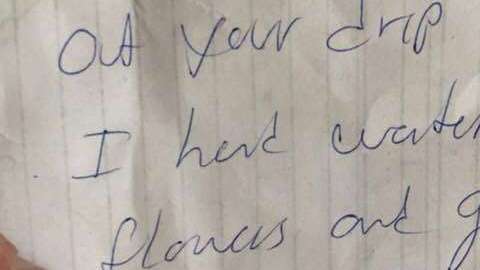 Out your drip
I hand water
flowers and